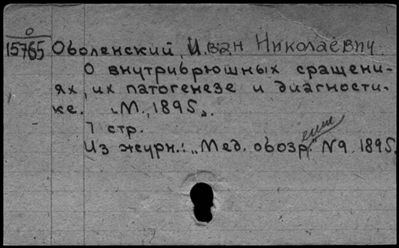 0
15765 Оболенский, Иван Николаевич.
О внутрибрюшных сращени-
ях, их патогенезе и диагности-
ке. „М., 1895„.
7 стр.
Из журн.: „Мед. обозр." №9. 1895.